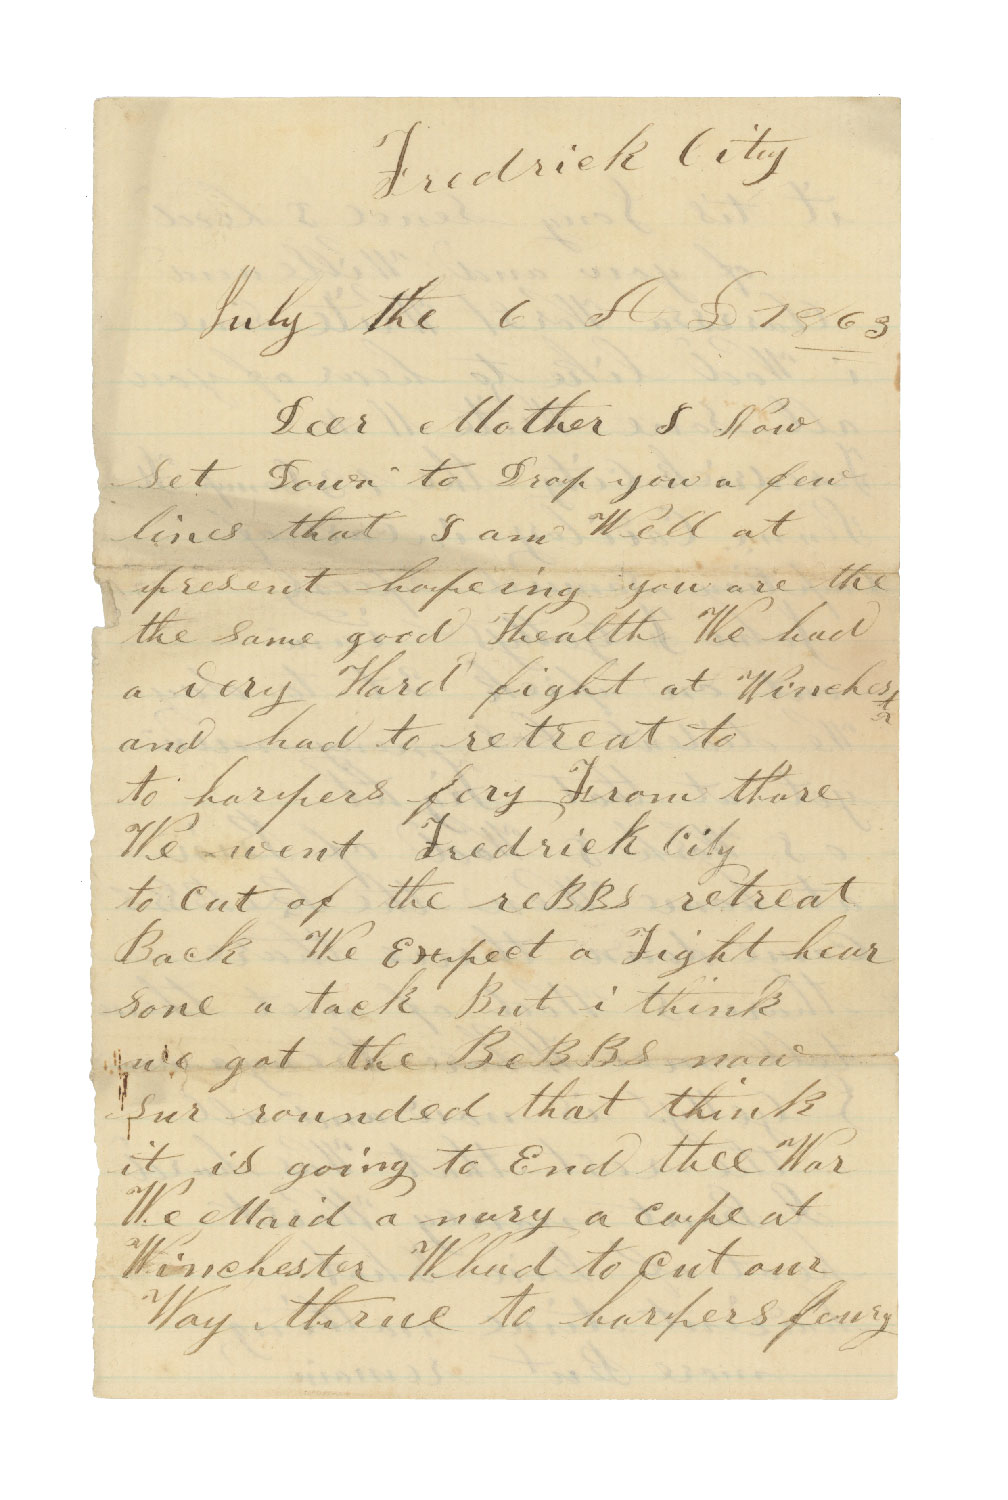 Fredrick City
July the 6 A D 1863
Deer Mother I Now
Set Down to Drop you a few
lines that I am Well at
present hopeing you are the
the same good Health We had
a very Hard fight at Winchester
and had to retreat to
to harpers fery From thare
We went Fredrick City
to cut of the reBBs retreat
Back We Expect a Fight hear
sone a tack But i think
we got the ReBBs now
sur rounded that think
it is going to End thee War
We Maid a nary a cape at
Winchester We had to cut our
Way thrue to harpers